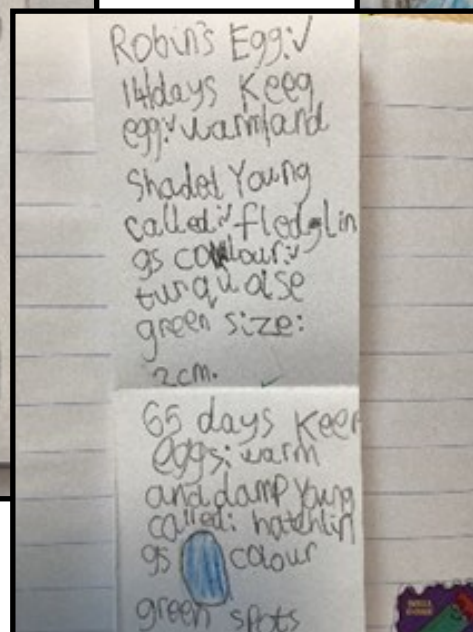 Robin's Egg:✓
14/days Keeq
egg:✓ warm/and
Shaded Young
called:✓ fledglin
gs colour:✓
turquoise
green size:
2cm.
65 days Keep
eggs: warm
and damp Young
called: hatchlin
gs colour
green spots